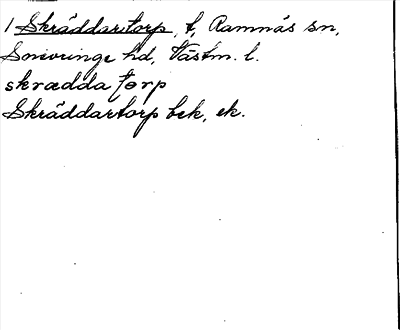 1 Skräddartorp, t, Ramnäs sn,
Snevringe hd, Västm. l.
skrædda torp
Skräddartorp bek, ek.